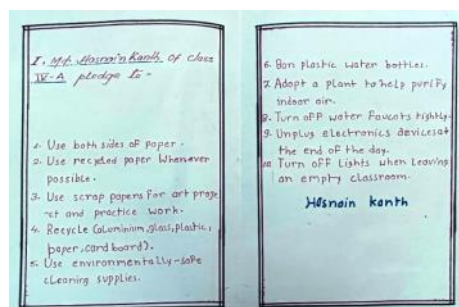 I, Mr. Hasnain Kanth of class
IV-A pledge to -
1. Use both sides of paper.
2. Use recycled paper whenever
possible.
3. Use scrap papers for art proje
-ct and practice work.
4. Recycle (aluminium, glass, plastic,
paper, card board).
5. Use environmentally-safe
cleaning supplies.
6. Ban plastic water bottles.
7. Adopt a plant to help purify
indoor air.
8. Turn off water faucets tightly.
9. Unplug electronics devices at
the end of the day.
10. Turn off Lights when leaving
an empty classroom.
Hasnain kanth